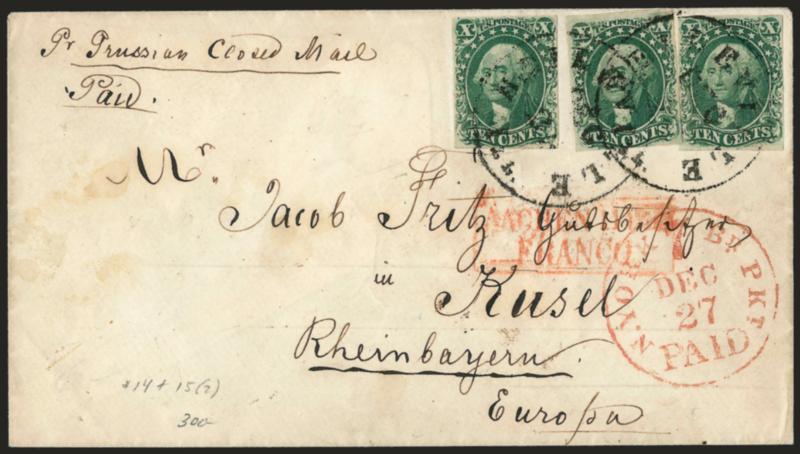 Pr Prussian Closed Mail
Paid.
X U.S. POSTAGE X
TEN CENTS
X U.S. POSTAGE X
TEN CENTS
X U.S. POSTAGE X
TEN CENTS
Mr.
Jacob Fritz Gutsbesitzer
AACHEN
FRANCO
in
Kusel
Rheinbayern.
Europa
N. YORK Br PKT
DEC
27
PAID
#14 + 15(2)
300